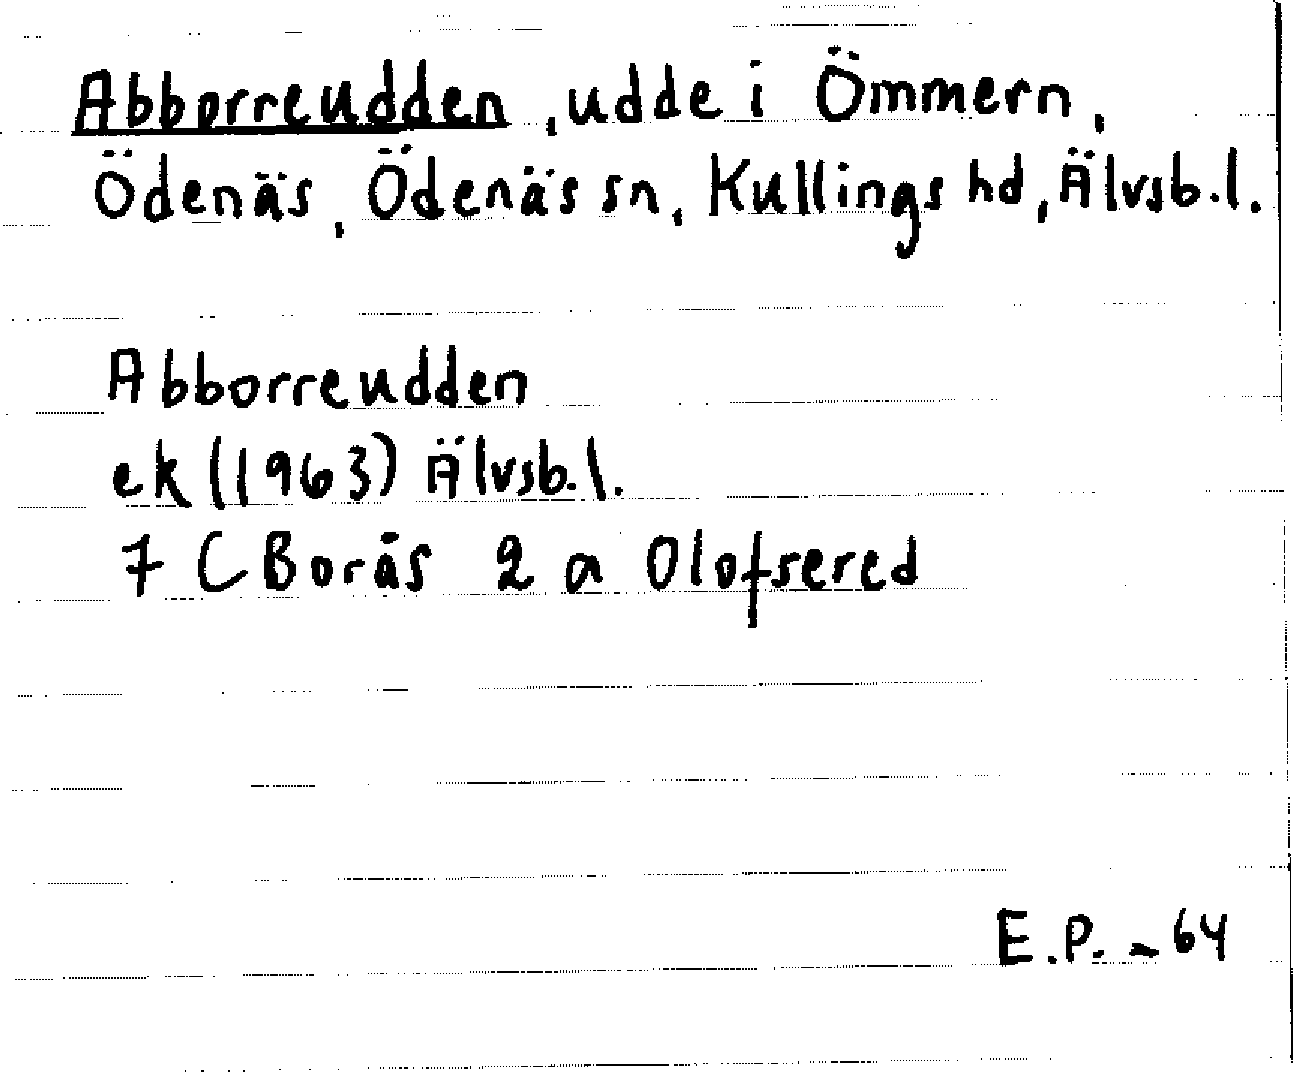 Abborreudden, udde i Ömmern,
Ödenäs, Ödenäs sn, Kullings hd, Älvsb.l.
Abborreudden
ek (1963) Älvsb.l.
7 C Borås 2 a Olofsered
E.P. - 64